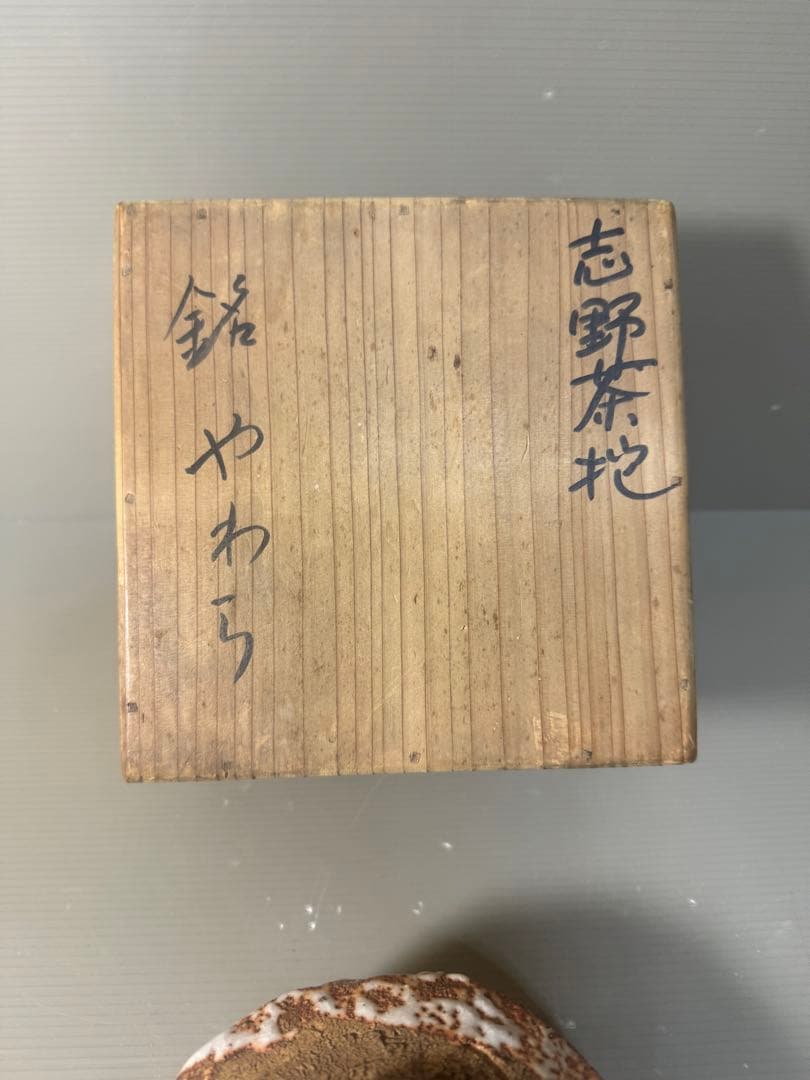 志野茶垸
銘 やわら